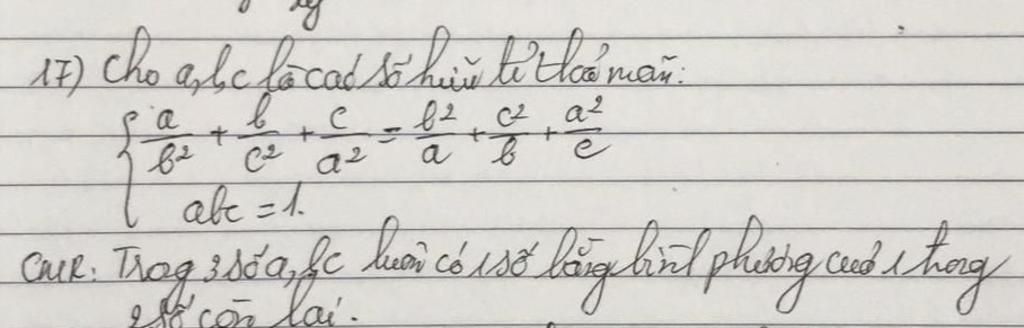 17) Cho a, b, c là các số hữu tỉ thoả mãn:
a/b² + b/c² + c/a² = b²/a + c²/b + a²/c
abc = 1.
CMR: Trong 3 số a, b, c luôn có 1 số bằng bình phương của 1 trong
2 số còn lại.